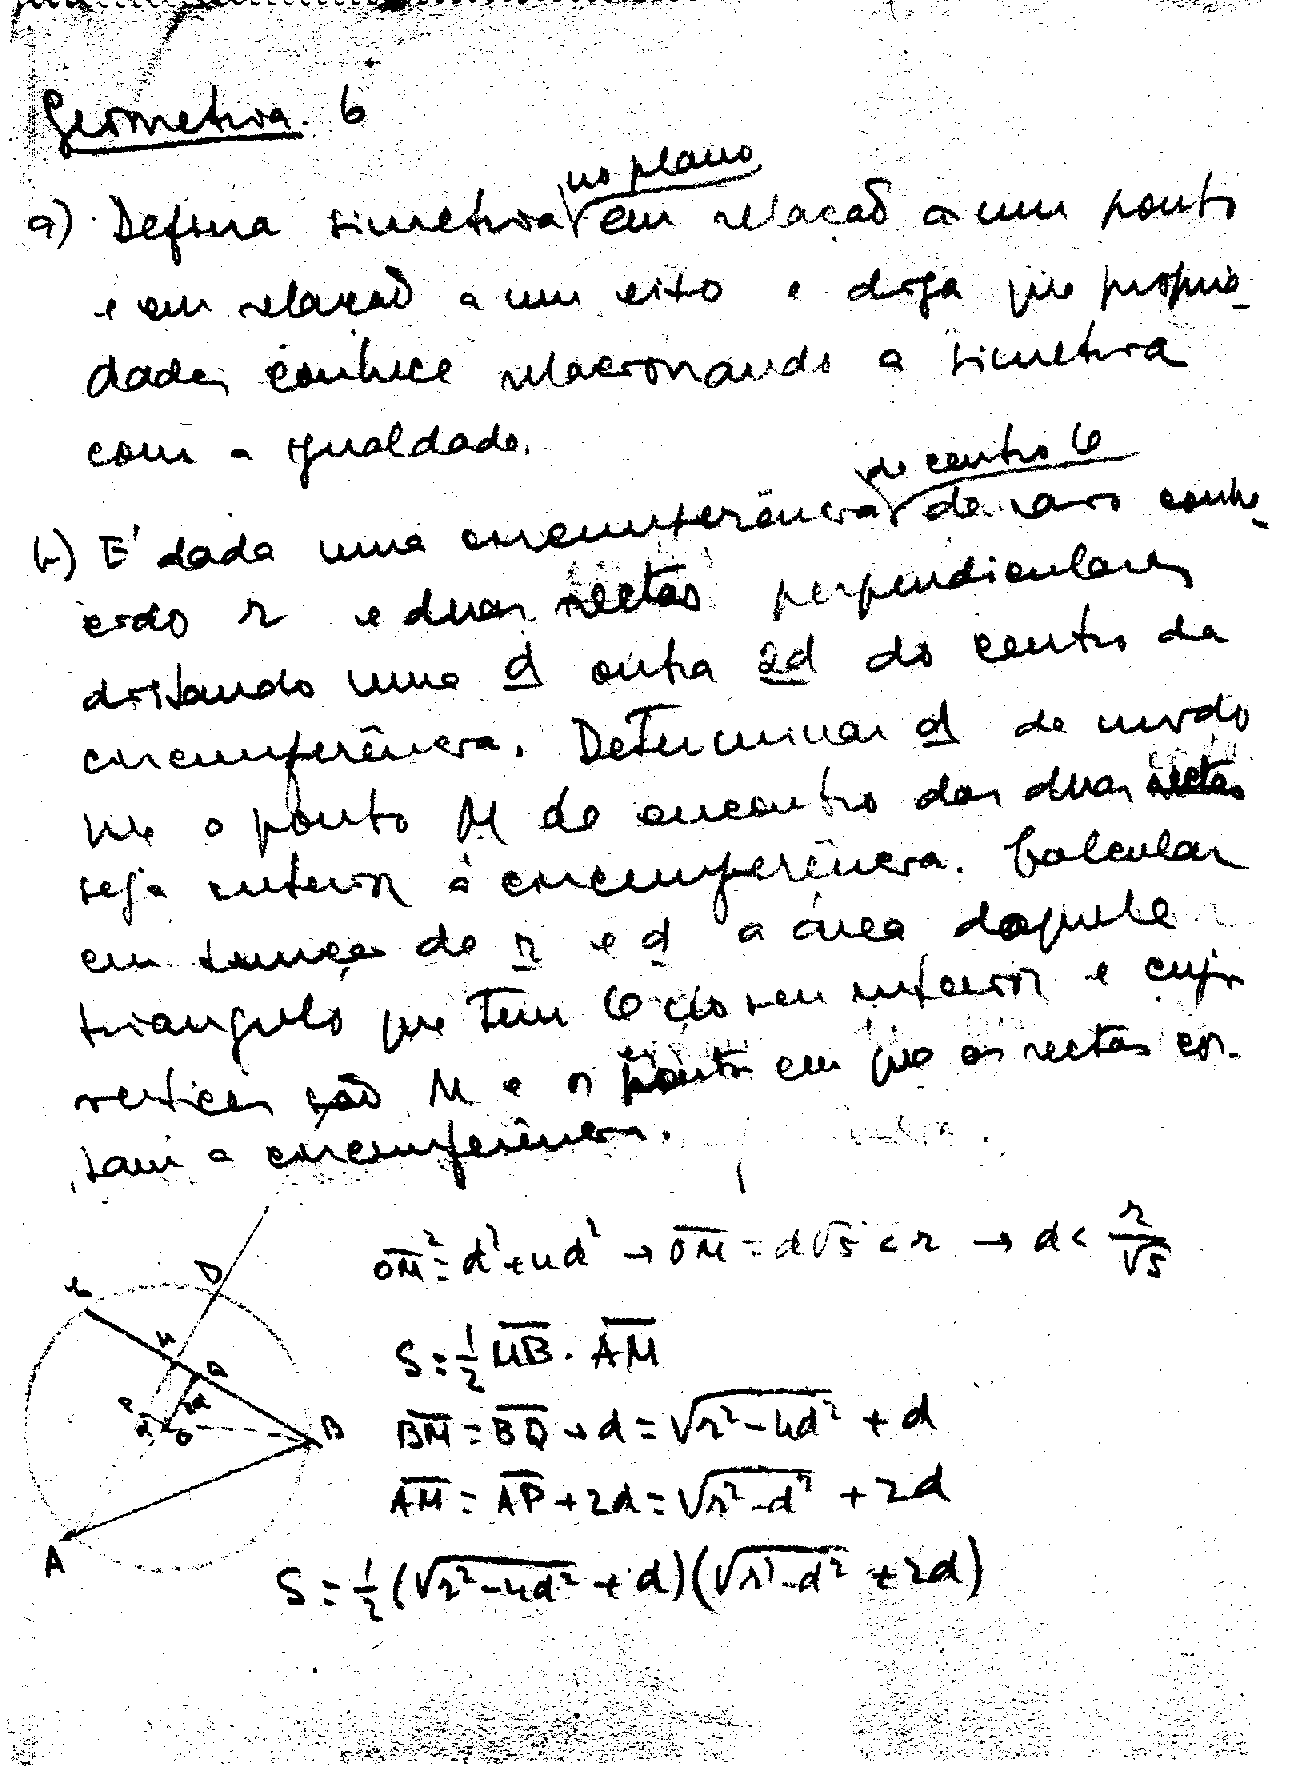 Geometria. 6
no plano
a) Defina simetria em relação a um ponto
e em relação a um eixo e diga que proprie-
dades conhece relacionando a simetria
com a igualdade.
de centro O
b) É dada uma circunferência de raio conhe-
cido r e duas rectas perpendiculares
distando uma d outra 2d do centro da
circunferência. Determinar d de modo
que o ponto M de encontro das duas rectas
seja interior à circunferência. Calcular
em função de r e d a área daquele
triangulo que tem O no seu interior e cujos
vertices são M e os pontos em que as rectas cor-
tam a circunferência.
OM² = d² + 4d² → OM = d√5 < r → d < r/√5
S = 1/2 MB . AM
BM = BQ + d = √r²-4d² + d
AM = AP + 2d = √r²-d² + 2d
S = 1/2 (√r²-4d² + d)(√r²-d² + 2d)
D
M
Q
P
O
B
A